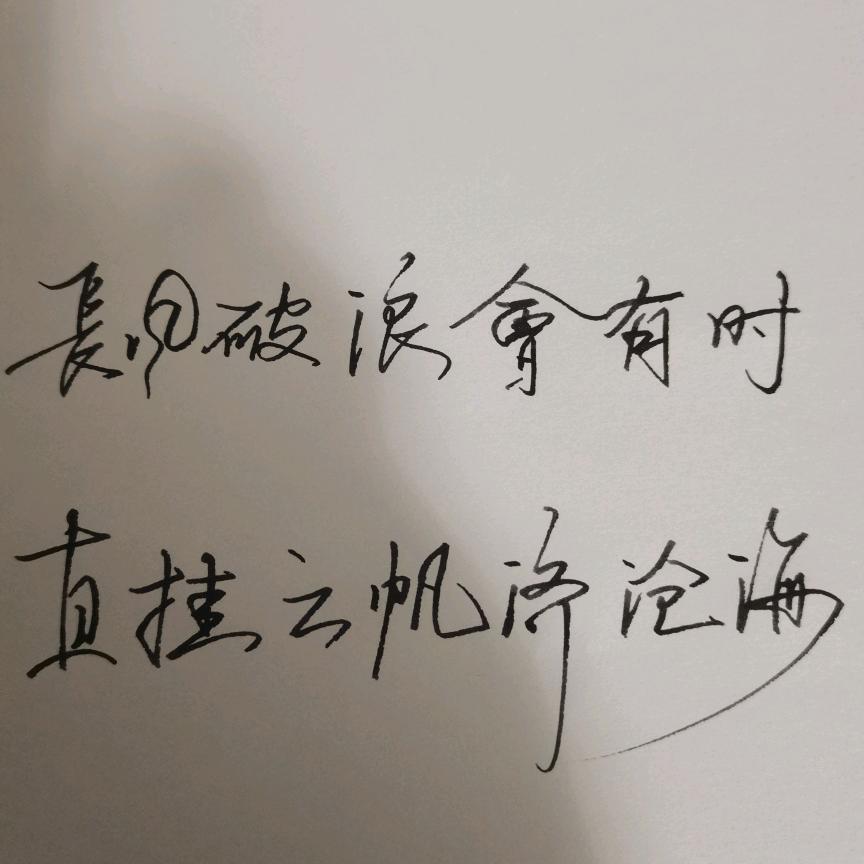 長风破浪會有时
直挂云帆济沧海